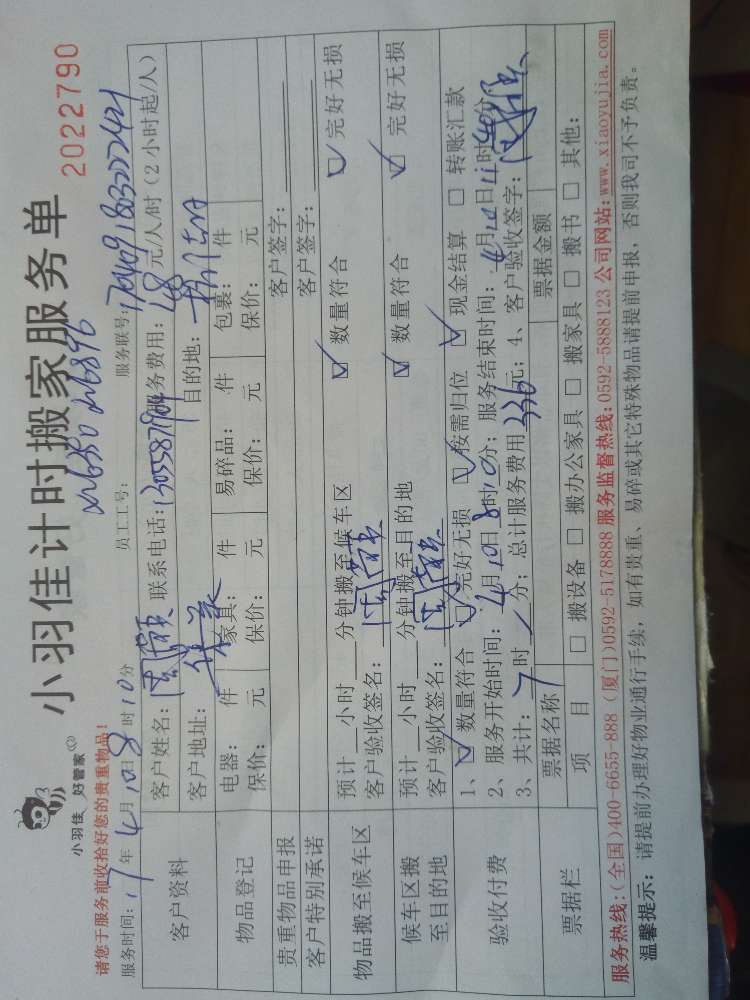 小羽佳 好管家
小羽佳计时搬家服务单
2022790
请您于服务前收拾好您的贵重物品!
服务时间: 17年4月10日8时10分 员工工号: 服务联号:
客户资料
客户姓名: 联系电话: 服务费用: 48元/人/时 (2小时起/人)
客户地址: 目的地:
物品登记
电器: 件 家具: 件 易碎品: 件 包裹: 件
保价: 元 保价: 元 保价: 元 保价: 元
贵重物品申报 客户签字:
客户特别承诺 客户签字:
物品搬至候车区
预计 小时 分钟搬至候车区 数量符合 完好无损
客户验收签名:
候车区搬至目的地
预计 小时 分钟搬至目的地 数量符合 完好无损
客户验收签名:
验收付费
1、 数量符合 完好无损 按需归位 现金结算 转账汇款
2、服务开始时间: 4月10日8时10分; 服务结束时间: 4月10日11时40分
3、共计: 7时 分; 总计服务费用336元; 4、客户验收签字:
票据栏
票据名称 票据金额
项 目 搬设备 搬办公家具 搬家具 搬书 其他:
服务热线:(全国)400-6655-888 (厦门)0592-5178888 服务监督热线:0592-5888123 公司网站:www.xiaoyujia.com
温馨提示: 请提前办理好物业通行手续, 如有贵重、易碎或其它特殊物品请提前申报, 否则我司不予负责。